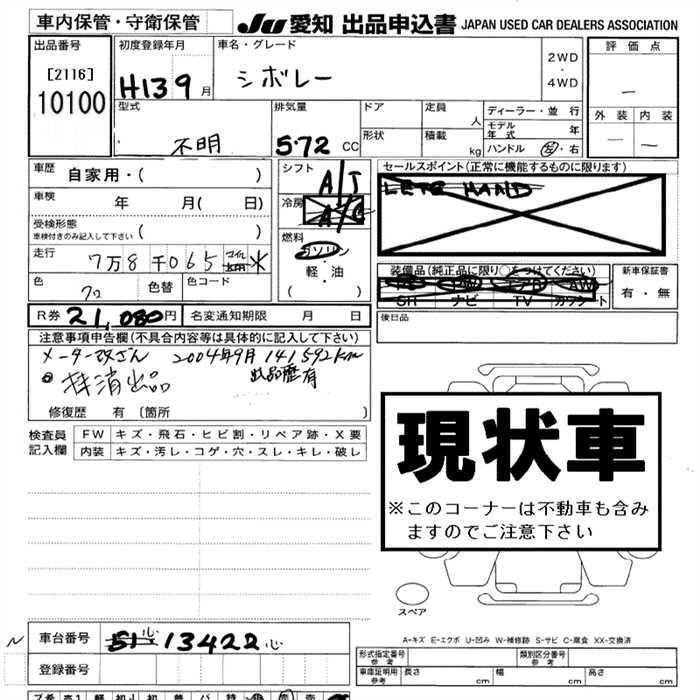 車内保管・守衛保管
JU 愛知 出品申込書 JAPAN USED CAR DEALERS ASSOCIATION
出品番号 初度登録年月 車名・グレード 評価点
[2116]
10100
H13 9月
シボレー
2WD
・
4WD
－
外装 内装
－ －
型式 排気量 ドア 定員 人 ディーラー・並行
不明 5.72 CC 形状 積載 kg モデル年式 年
ハンドル 左・右
車歴 自家用・( )
シフト A/T
セールスポイント(正常に機能するものに限ります)
LEFT HAND
車検 年 月( 日)
冷房 A/C
受検形態
車検付きのみ記入して下さい ( )
燃料
ガソリン
・
軽・油
( )
走行 7万8千065 マイル ※
色 クロ 色替 色コード
装備品(純正品に限り○をつけてください)
PS PW エアB AW
SR ナビ TV カワシート
新車保証書
有・無
R券 21,080円 名変通知期限 月 日
後日品
注意事項申告欄(不具合内容等は具体的に記入して下さい)
メーター改ざん 2004年9月 141592km
出品歴有
抹消出品
修復歴 有 〔箇所 〕
検査員
記入欄
FW キズ・飛石・ヒビ割・リペア跡・X要
内装 キズ・汚レ・コゲ・穴・スレ・キレ・破レ
現状車
※このコーナーは不動車も含み
ますのでご注意下さい
スペア
A-キズ E-エクボ U-凹み W-補修跡 S-サビ C-腐食 XX-交換済
車台番号 13422
登録番号
形式指定番号
参考
類別区分番号
参考
車庫証明用
参考
長さ cm 幅 cm 高さ cm